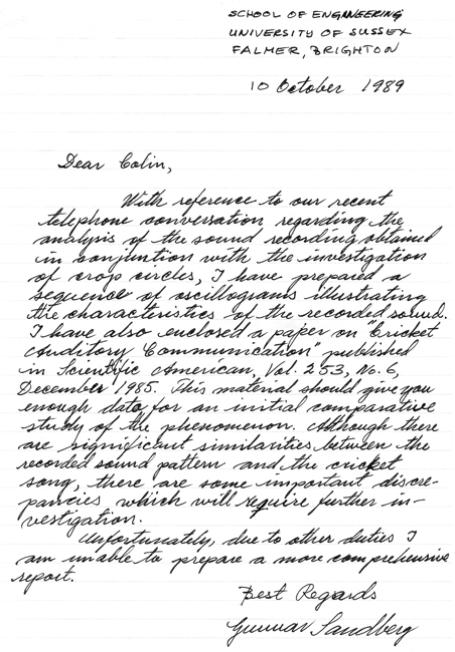 SCHOOL OF ENGINEERING
UNIVERSITY OF SUSSEX
FALMER, BRIGHTON
10 October 1989
Dear Colin,
With reference to our recent
telephone conversation regarding the
analysis of the sound recording obtained
in conjuntion with the investigation
of crop circles, I have prepared a
sequence of oscillograms illustrating
the characteristics of the recorded sound.
I have also enclosed a paper on "Cricket
Auditory Communication" published
in Scientific American, Vol. 253, No. 6,
December 1985. This material should give you
enough data for an initial comparative
study of the phenomenon. Although there
are significant similarities between the
recorded sound pattern and the cricket
song, there are some important discre-
pancies which will require further in-
vestigation.
Unfortunately, due to other duties I
am unable to prepare a more comprehensive
report.
Best Regards
Gunnar Sandberg